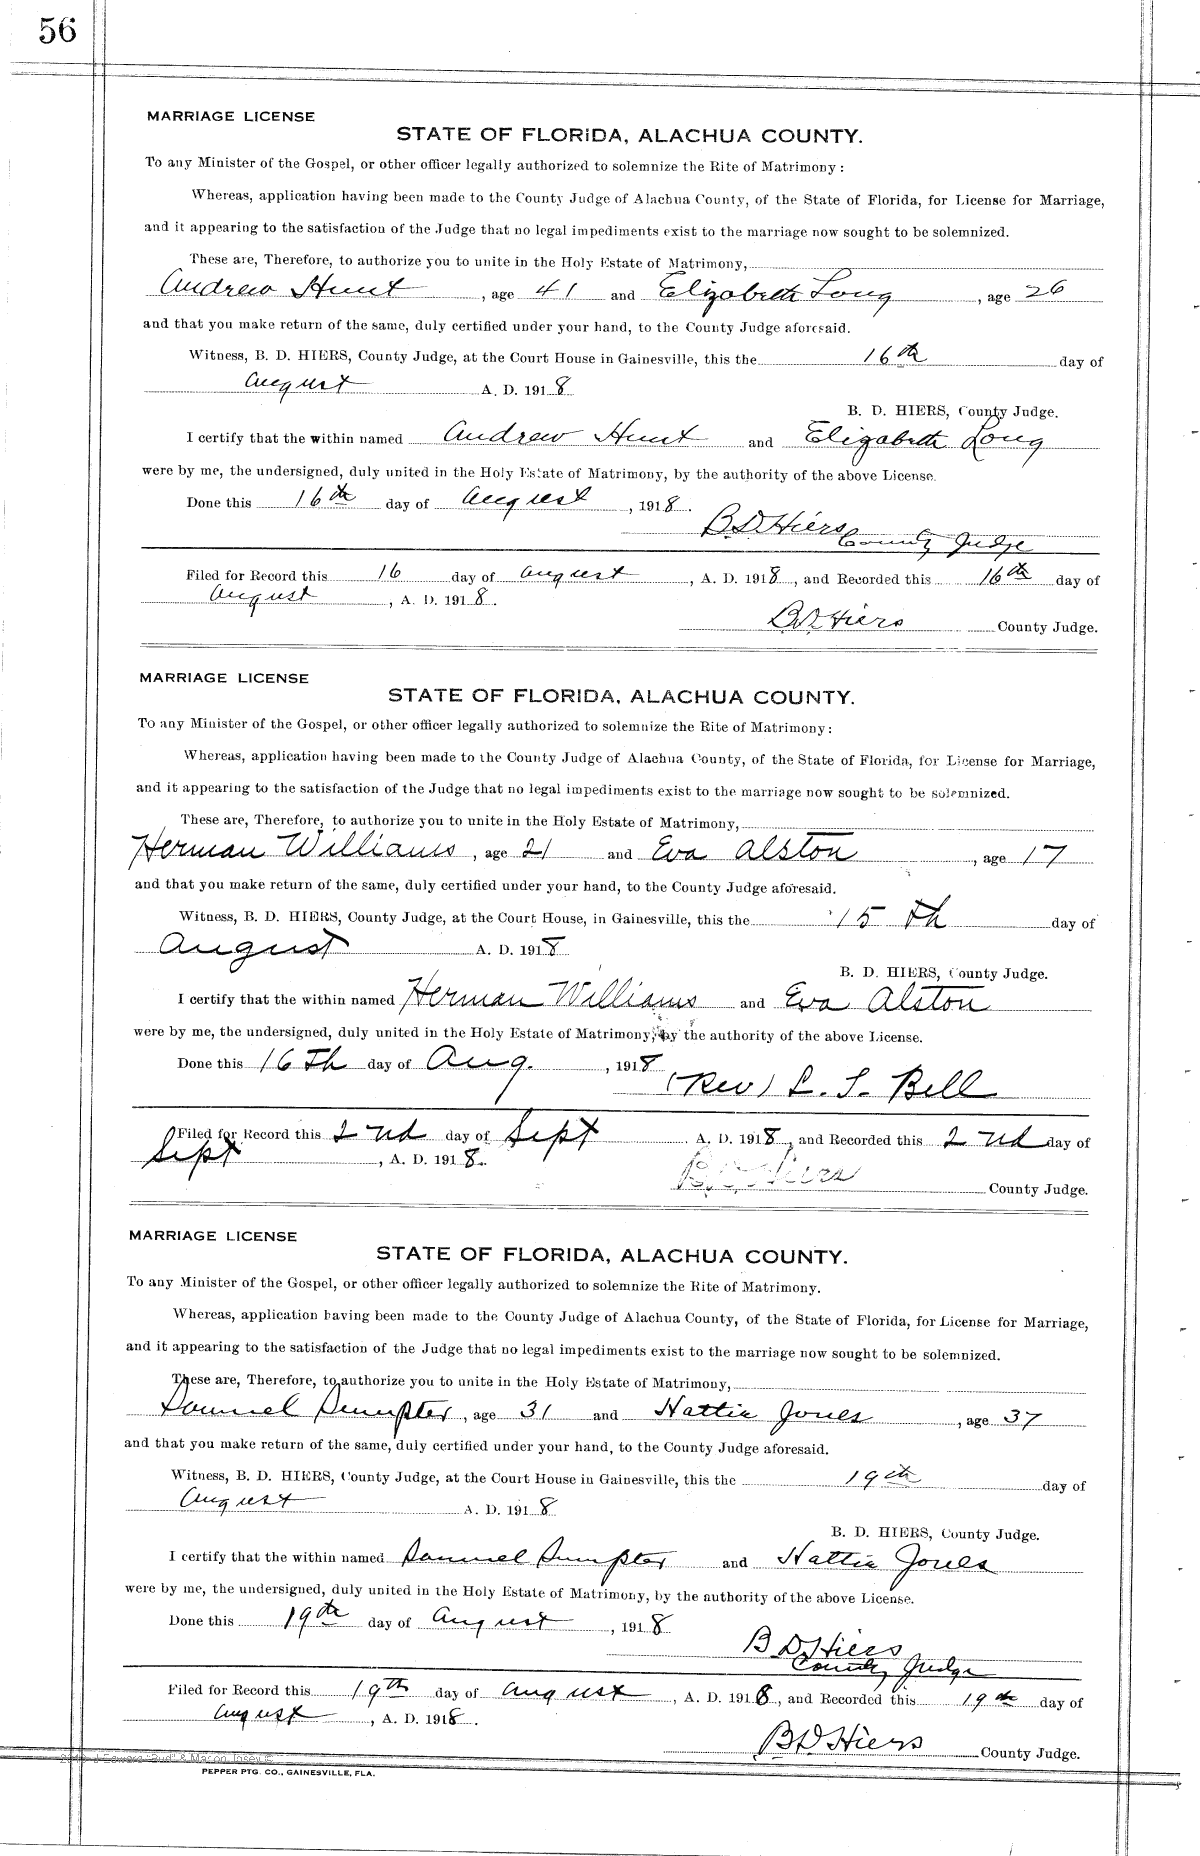 56
MARRIAGE LICENSE
STATE OF FLORIDA, ALACHUA COUNTY.
To any Minister of the Gospel, or other officer legally authorized to solemnize the Rite of Matrimony:
Whereas, application having been made to the County Judge of Alachua County, of the State of Florida, for License for Marriage,
and it appearing to the satisfaction of the Judge that no legal impediments exist to the marriage now sought to be solemnized.
These are, Therefore, to authorize you to unite in the Holy Estate of Matrimony,
Andrew Hunt, age 41 and Elizabeth Long, age 26
and that you make return of the same, duly certified under your hand, to the County Judge aforesaid.
Witness, B. D. HIERS, County Judge, at the Court House in Gainesville, this the 16th day of
August A. D. 1918
B. D. HIERS, County Judge.
I certify that the within named Andrew Hunt and Elizabeth Long
were by me, the undersigned, duly united in the Holy Estate of Matrimony, by the authority of the above License.
Done this 16th day of August, 1918.
B. D. Hiers
County Judge
Filed for Record this 16 day of August, A. D. 1918, and Recorded this 16th day of
August, A. D. 1918.
B. D. Hiers County Judge.
MARRIAGE LICENSE
STATE OF FLORIDA, ALACHUA COUNTY.
To any Minister of the Gospel, or other officer legally authorized to solemnize the Rite of Matrimony:
Whereas, application having been made to the County Judge of Alachua County, of the State of Florida, for License for Marriage,
and it appearing to the satisfaction of the Judge that no legal impediments exist to the marriage now sought to be solemnized.
These are, Therefore, to authorize you to unite in the Holy Estate of Matrimony,
Herman Williams, age 21 and Eva Alston, age 17
and that you make return of the same, duly certified under your hand, to the County Judge aforesaid.
Witness, B. D. HIERS, County Judge, at the Court House, in Gainesville, this the 15th day of
August A. D. 1918
B. D. HIERS, County Judge.
I certify that the within named Herman Williams and Eva Alston
were by me, the undersigned, duly united in the Holy Estate of Matrimony, by the authority of the above License.
Done this 16Th day of Aug., 1918
(Rev) L. S. Bell
Filed for Record this 2nd day of Sept A. D. 1918, and Recorded this 2nd day of
Sept, A. D. 1918.
B. D. Hiers County Judge.
MARRIAGE LICENSE
STATE OF FLORIDA, ALACHUA COUNTY.
To any Minister of the Gospel, or other officer legally authorized to solemnize the Rite of Matrimony.
Whereas, application having been made to the County Judge of Alachua County, of the State of Florida, for License for Marriage,
and it appearing to the satisfaction of the Judge that no legal impediments exist to the marriage now sought to be solemnized.
These are, Therefore, to authorize you to unite in the Holy Estate of Matrimony,
Samuel Sumpter, age 31 and Hattie Jones, age 37
and that you make return of the same, duly certified under your hand, to the County Judge aforesaid.
Witness, B. D. HIERS, County Judge, at the Court House in Gainesville, this the 19th day of
August A. D. 1918
B. D. HIERS, County Judge.
I certify that the within named Samuel Sumpter and Hattie Jones
were by me, the undersigned, duly united in the Holy Estate of Matrimony, by the authority of the above License.
Done this 19th day of August, 1918
B D Hiers
County Judge
Filed for Record this 19th day of August, A. D. 1918, and Recorded this 19th day of
August, A. D. 1918.
B D Hiers County Judge.
PEPPER PTG. CO., GAINESVILLE, FLA.